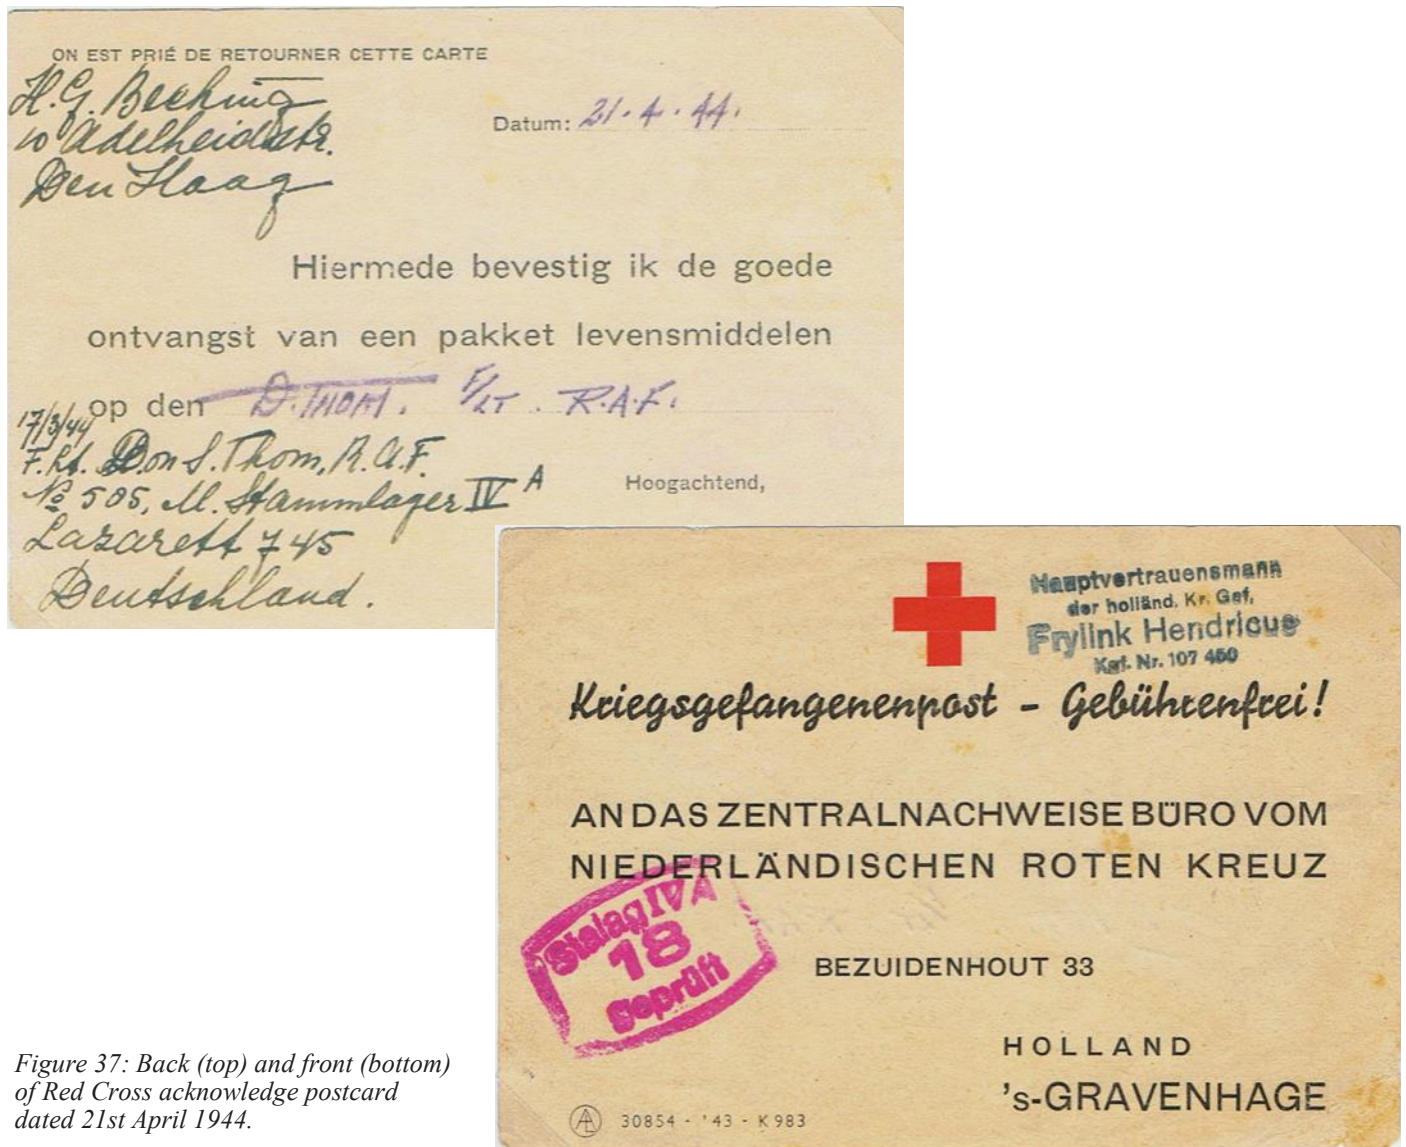 ON EST PRIÉ DE RETOURNER CETTE CARTE
H. G. Becking
10 Adelheidstr.
Den Haag
Datum: 21 · 4 · 44.
Hiermede bevestig ik de goede
ontvangst van een pakket levensmiddelen
op den D. THOM. F/LT. R.A.F.
17/3/44
F. Lt. Don S. Thom, R.A.F.
No 505, M. Stammlager IV A
Hoogachtend,
Lazarett 745
Deutschland.
Hauptvertrauensmann
der holländ. Kr. Gef,
Frylink Hendricus
Kgf. Nr. 107 450
Kriegsgefangenenpost - Gebührenfrei!
AN DAS ZENTRALNACHWEISE BÜRO VOM
NIEDERLÄNDISCHEN ROTEN KREUZ
Stalag IV A
18
geprüft
BEZUIDENHOUT 33
HOLLAND
's-GRAVENHAGE
AL 30854 - '43 - K 983
Figure 37: Back (top) and front (bottom)
of Red Cross acknowledge postcard
dated 21st April 1944.